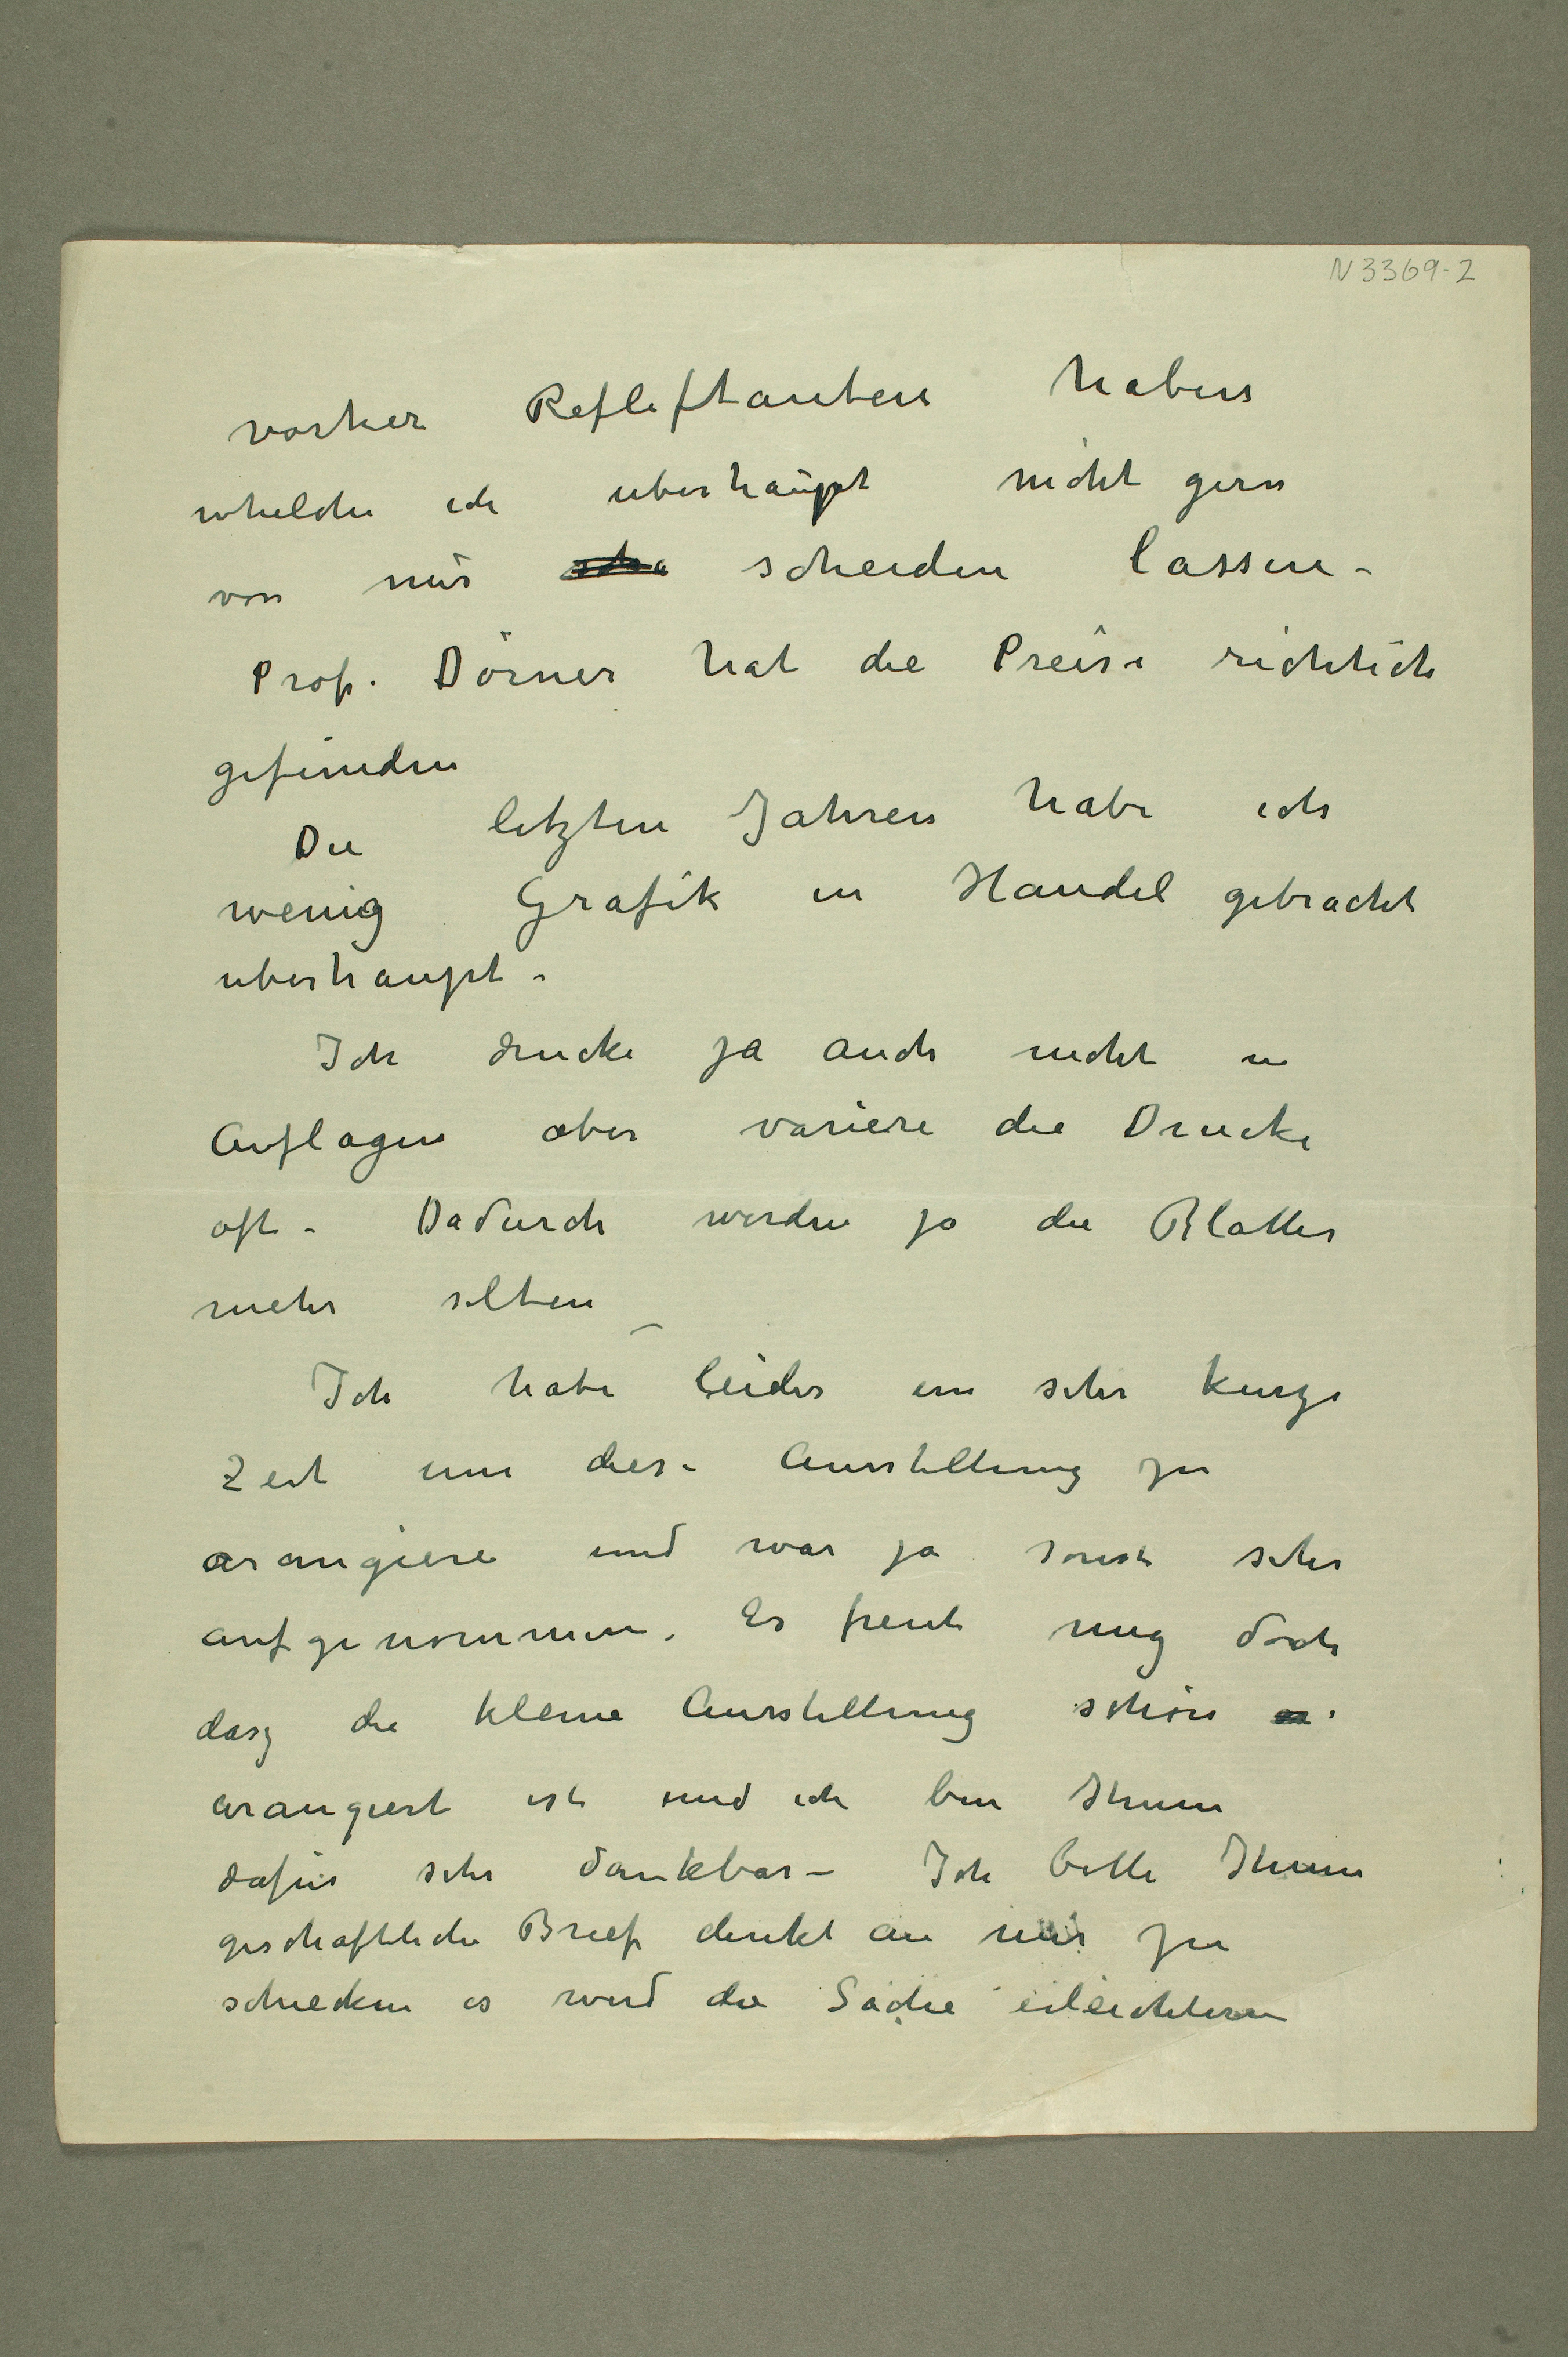 N 3369-2
vorher Refleftanten haben
whelche ich uberhaupt nicht gern
von mir scheiden lassen –
Prof. Dörner hat die Preise richtich
gefunden
Die letzten Jahren habe ich
wenig Grafik in Handel gebracht
uberhaupt –
Ich drucke ja auch nicht in
Auflagen aber variere die Drucke
oft – Dadurch werden ja die Blatter
mehr selten –
Ich habe leider ein sehr kurze
Zeit um diese Ausstellung zu
arangiere und war ja sonst sehr
aufgenommen. Es freut mig doch
dasz die kleine Ausstellung schön
arangiert ist und ich bin Ihnen
dafür sehr dankbar – Ich bitte Ihnen
geschaftliche Brief direkt an mir zu
schicken es wird die Sache erleichteren